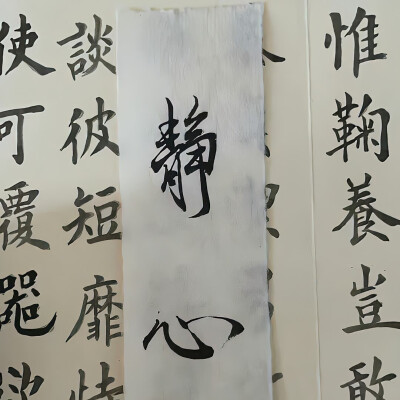 惟鞠養豈敢
靜心
談彼短靡恃
使可覆器欲